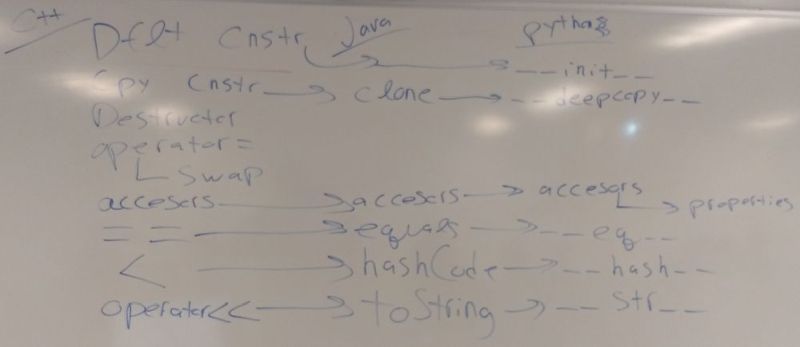 C++
Dflt Cnstr Java python3
__init__
Cpy Cnstr → clone → __deepcopy__
Destructor
operator=
swap
accesors → accesors → accesors → properties
== → equals → __eq__
< → hashCode → __hash__
operator<< → toString → __str__